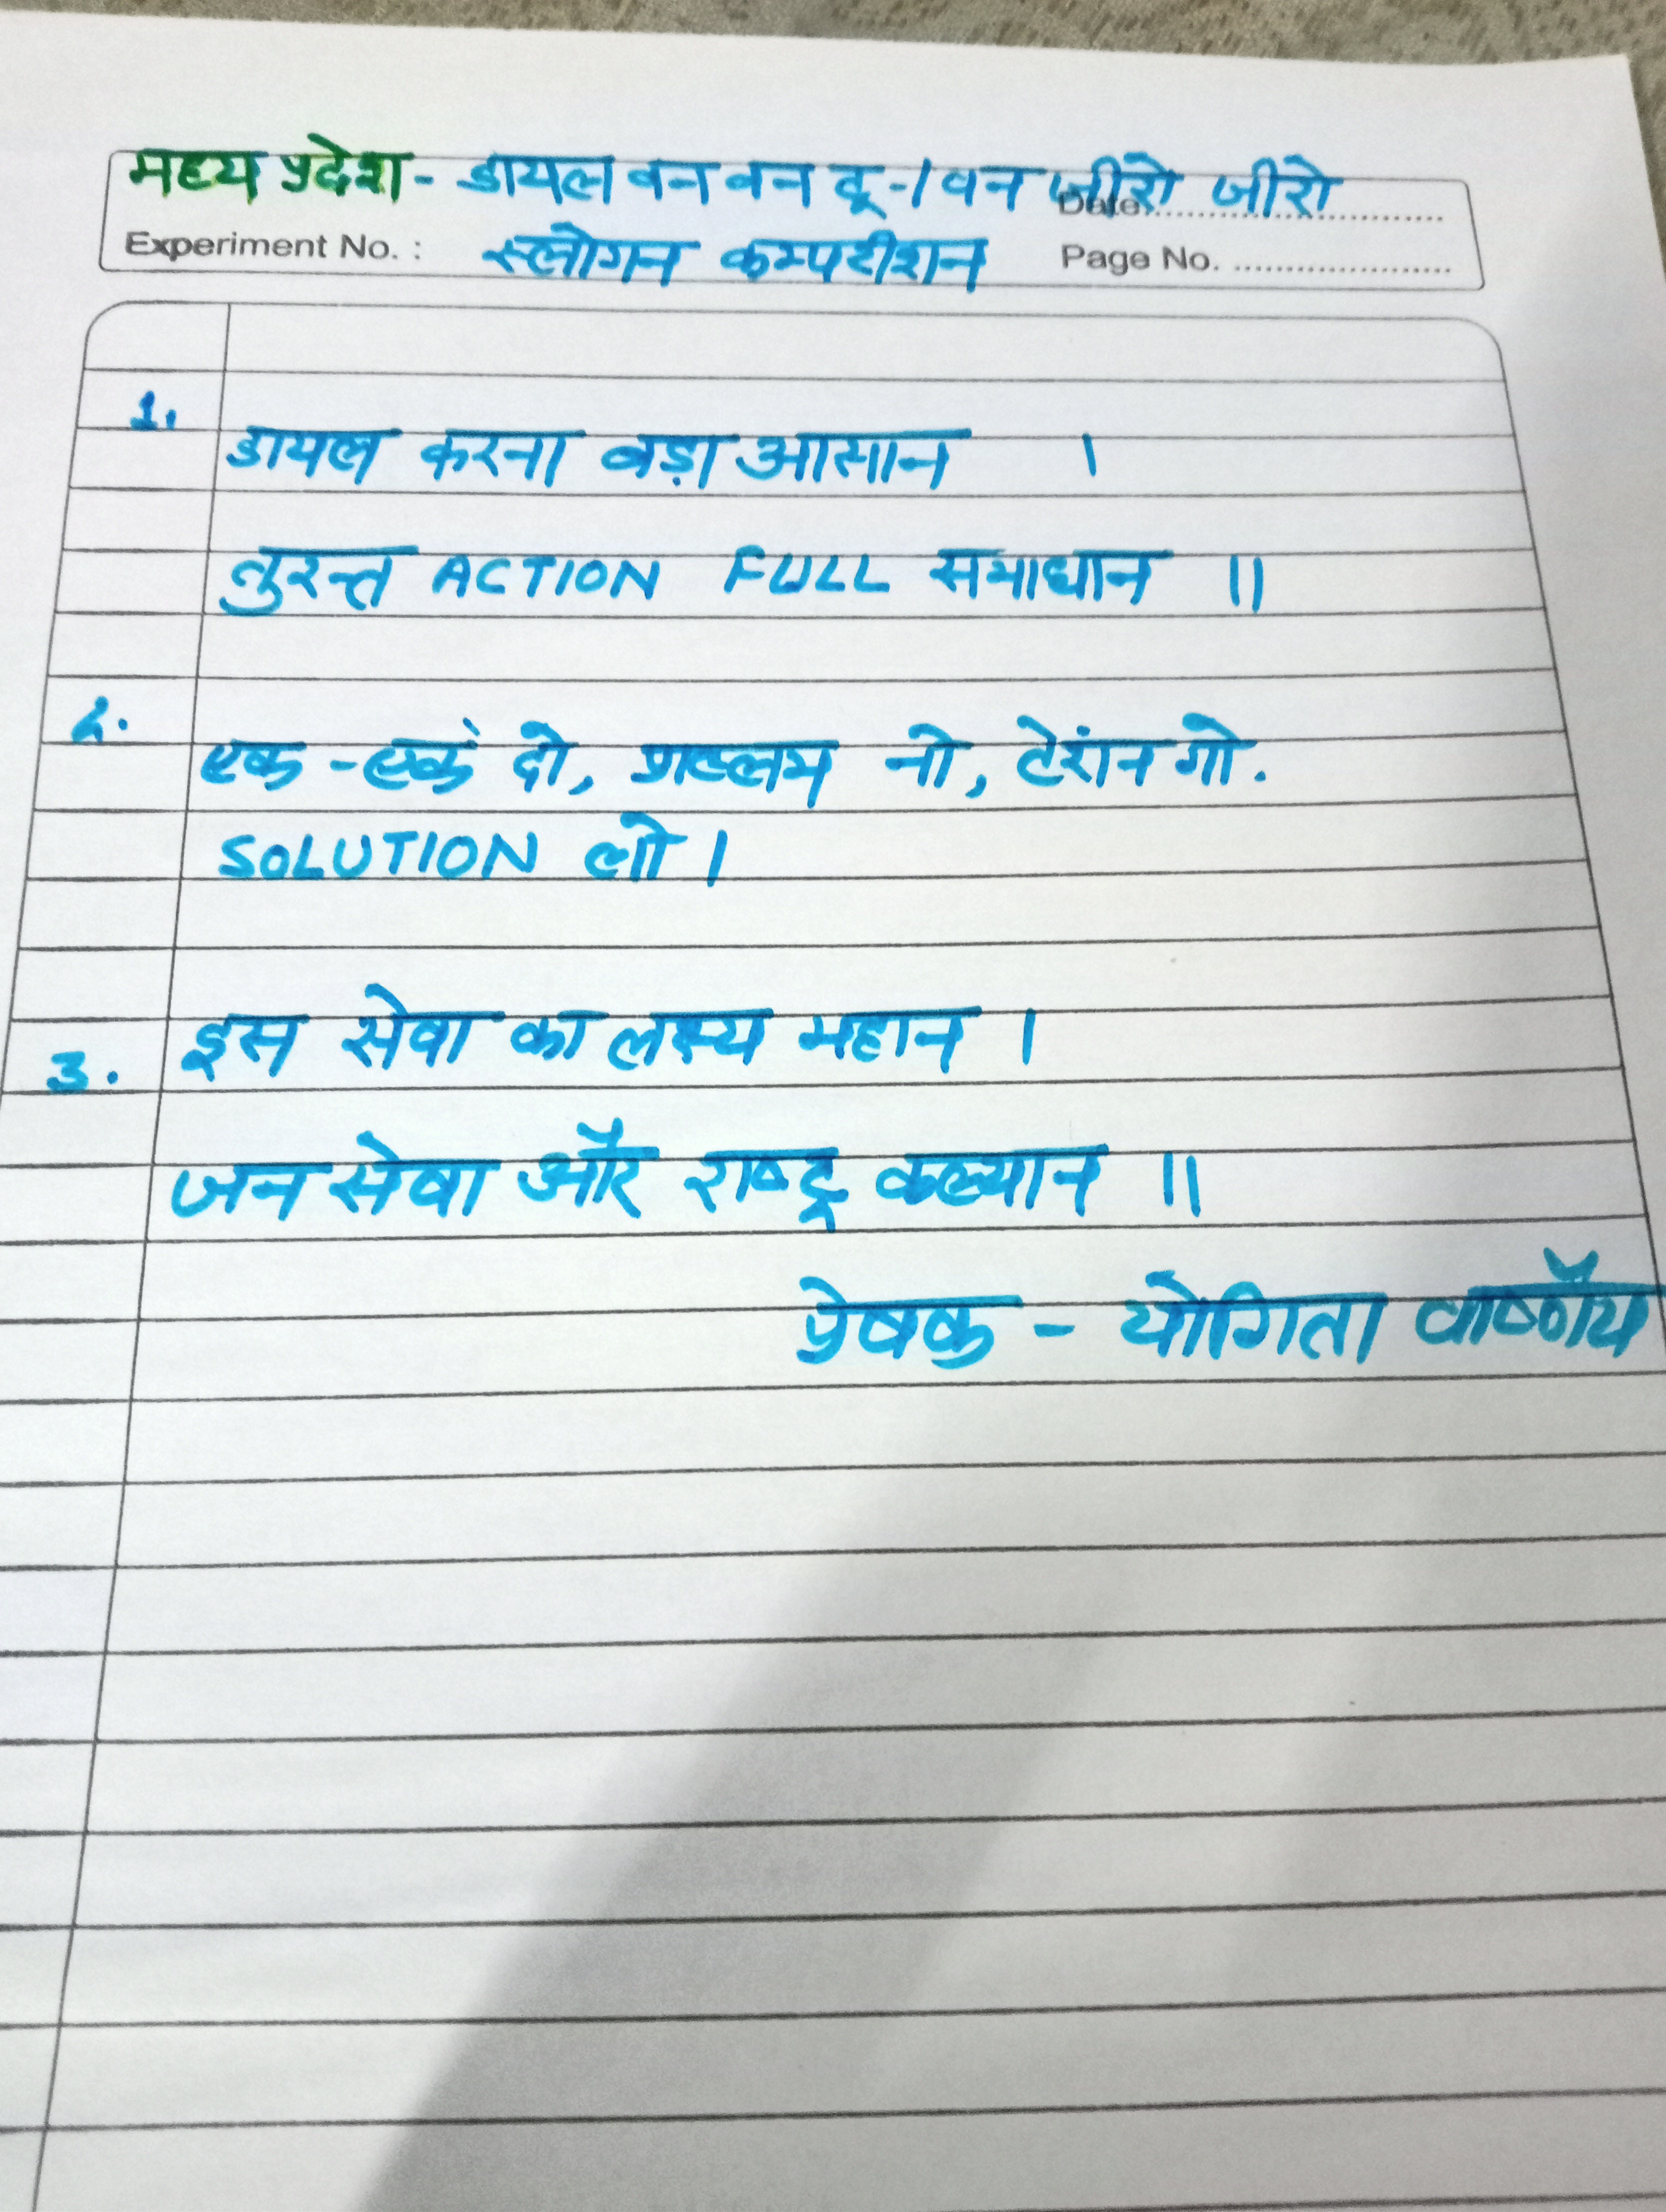 मध्य प्रदेश - डायल वन वन टू -/ वन जीरो जीरो
Date
Experiment No. : स्लोगन कम्पटीशन Page No.
1.
डायल करना बड़ा आसान ।
तुरन्त ACTION FULL समाधान ॥
2.
एक - एक दो, प्राब्लम नो, टेंशन गो.
SOLUTION लो ।
3. इस सेवा का लक्ष्य महान ।
जन सेवा और राष्ट्र कल्यान ॥
प्रेषक - योगिता वार्ष्णेय